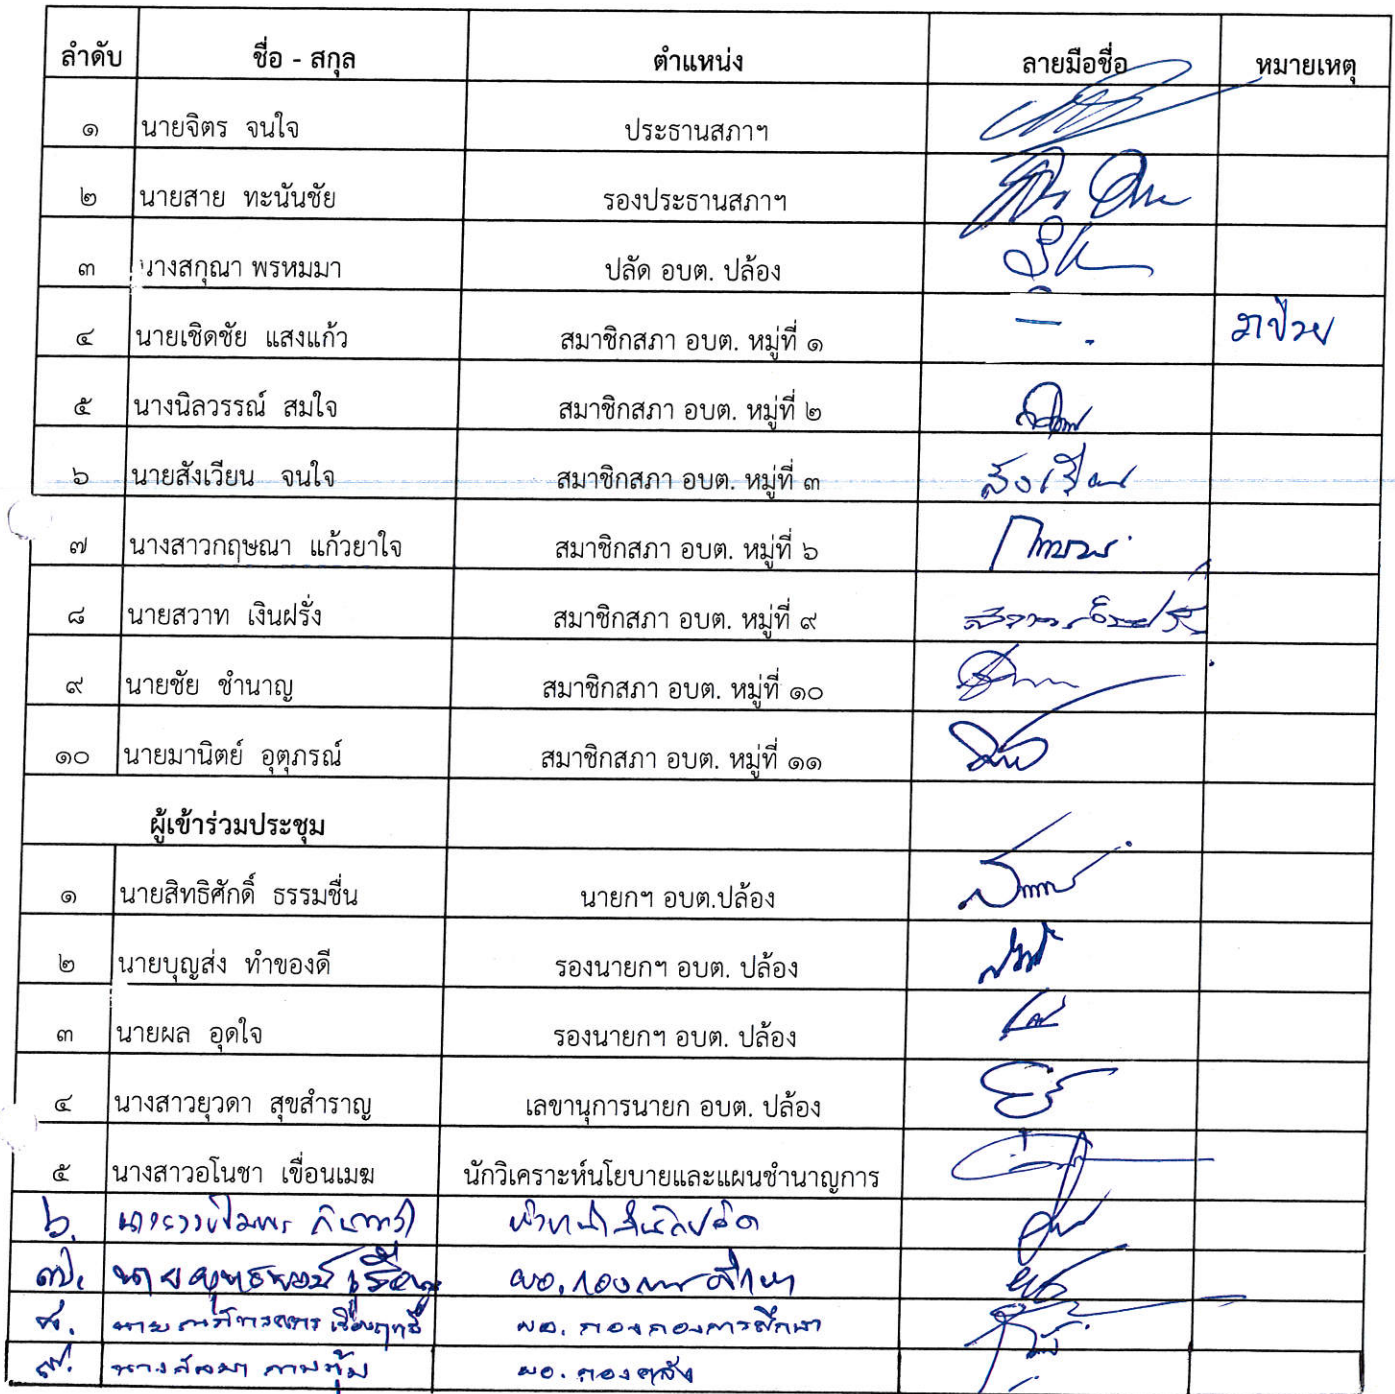 ลำดับ ชื่อ - สกุล ตำแหน่ง ลายมือชื่อ หมายเหตุ
๑ นายจิตร จนใจ ประธานสภาฯ
๒ นายสาย ทะนันชัย รองประธานสภาฯ
๓ นางสกุณา พรหมมา ปลัด อบต. ปล้อง
๔ นายเชิดชัย แสงแก้ว สมาชิกสภา อบต. หมู่ที่ ๑ - ลาป่วย
๕ นางนิลวรรณ์ สมใจ สมาชิกสภา อบต. หมู่ที่ ๒
๖ นายสังเวียน จนใจ สมาชิกสภา อบต. หมู่ที่ ๓ สังเวียน
๗ นางสาวกฤษณา แก้วยาใจ สมาชิกสภา อบต. หมู่ที่ ๖
๘ นายสวาท เงินฝรั่ง สมาชิกสภา อบต. หมู่ที่ ๙
๙ นายชัย ชำนาญ สมาชิกสภา อบต. หมู่ที่ ๑๐
๑๐ นายมานิตย์ อุตุภรณ์ สมาชิกสภา อบต. หมู่ที่ ๑๑
ผู้เข้าร่วมประชุม
๑ นายสิทธิศักดิ์ ธรรมชื่น นายกฯ อบต.ปล้อง
๒ นายบุญส่ง ทำของดี รองนายกฯ อบต. ปล้อง
๓ นายผล อุดใจ รองนายกฯ อบต. ปล้อง
๔ นางสาวยุวดา สุขสำราญ เลขานุการนายก อบต. ปล้อง
๕ นางสาวอโนชา เขื่อนเมฆ นักวิเคราะห์นโยบายและแผนชำนาญการ
๖. หัวหน้าสำนักปลัด
๗. นาย ผอ. กองการศึกษา
๘. นาย ผอ. กอง
๙. นาง ผอ. กองคลัง